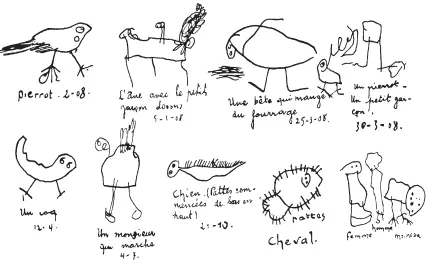 pierrot. 2-08.
L'âne avec le petit
garçon dessus
5-1-08
Une bête qui mange
du fourrage
25-3-08.
Un pierrot -
Un petit gar-
çon.
30-3-08.
Un coq
12-4.
Un monsieur
qui marche
4-7.
Chien. (Pattes com-
mencées de bas en
haut)
2-10.
pattes
Cheval.
femme
homme